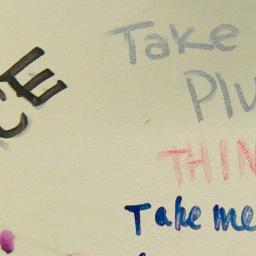 CE
Take
Plu
THIN
Take me